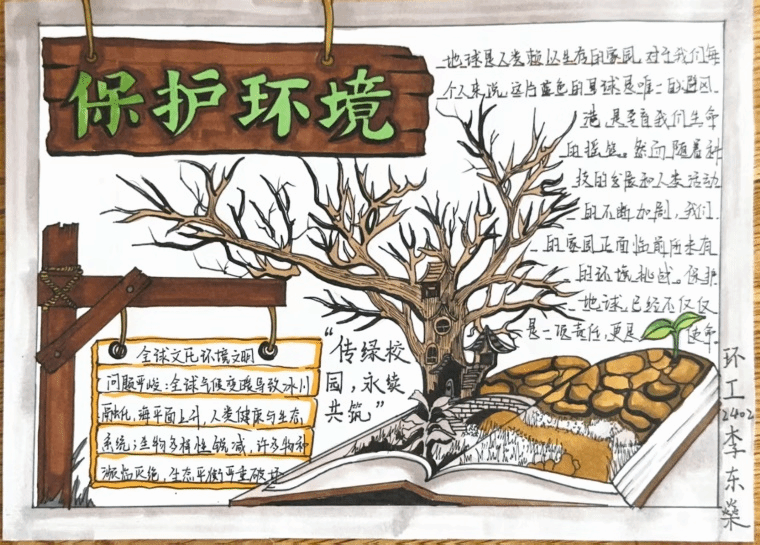 保护环境
地球是人类赖以生存的家园,对于我们每
个人来说,这片蓝色的星球是唯一的避风
港,是孕育我们生命
的摇篮。然而,随着科
技的发展和人类活动
的不断加剧,我们
的家园正面临前所未有
的环境挑战。保护
地球,已经不仅仅
是一项责任,更是 使命
全球文化环境文明
问题严峻:全球气候变暖导致冰川
融化,海平面上升,人类健康与生态
系统;生物多样性锐减,许多物种
濒临灭绝,生态平衡严重破坏
“传绿校
园,永续
共筑”
环工2402李东燊